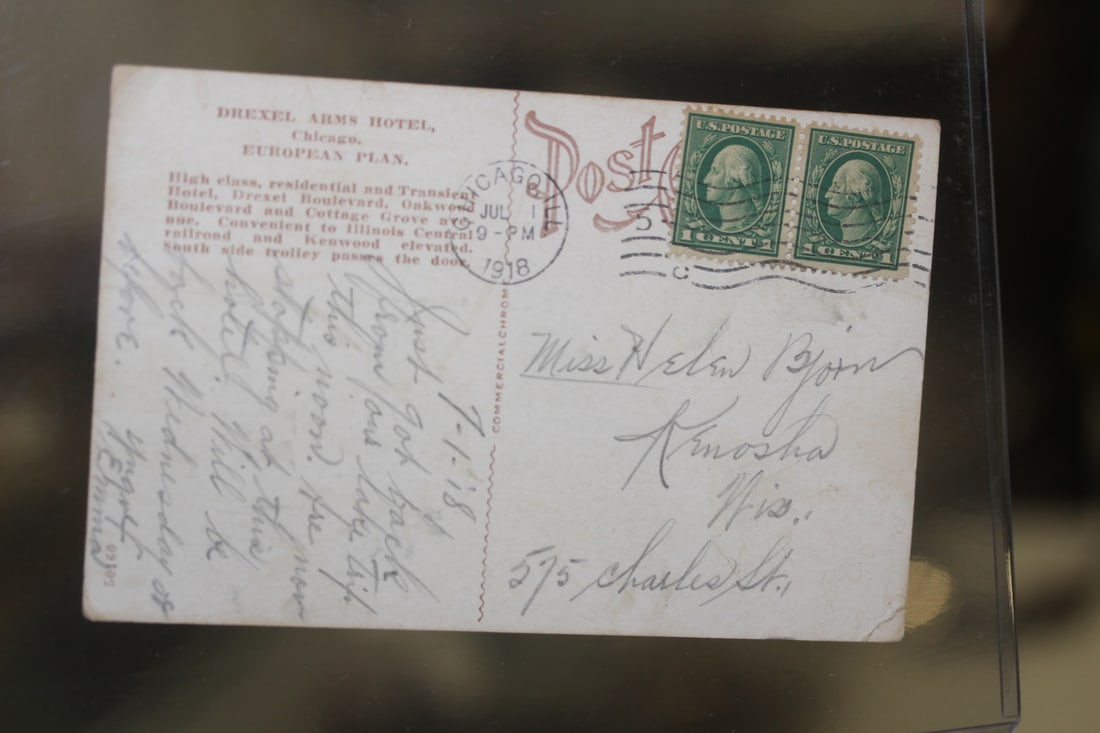 DREXEL ARMS HOTEL,
Chicago.
EUROPEAN PLAN.
High class, residential and Transient
Hotel, Drexel Boulevard, Oakwood
Boulevard and Cottage Grove ave-
nue. Convenient to Illinois Central
railroad and Kenwood elevated.
South side trolley passes the door.
COMMERCIALCHROM
Post
CHICAGO, ILL
JUL 1
9-PM
1918
U.S. POSTAGE
1 CENT 1
U.S. POSTAGE
1 CENT 1
Miss Helen Bjorn
Kenosha
Wis.,
575 Charles St.,
7-1-'18
Just got back
from our lake trip
this noon. Are now
stopping at this
hotel. Will be
back Wednesday or
before.
Emma